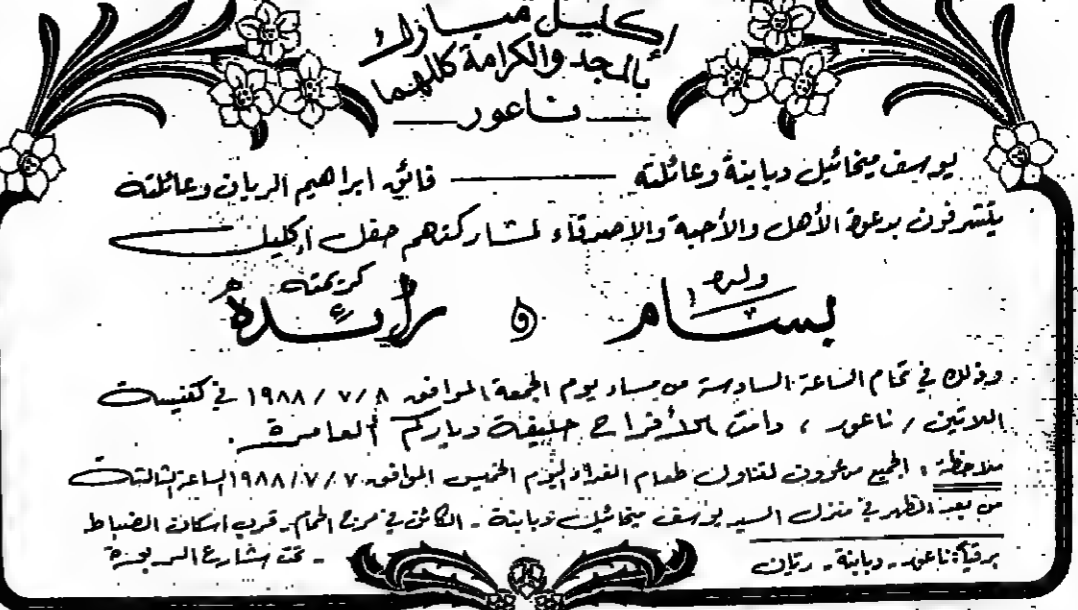 إكليل مبارك
بالمجد والكرامة كللهما
ناعور
يوسف ميخائيل دبابنة وعائلته — فائق ابراهيم الريان وعائلته
يتشرفون بدعوة الأهل والأحبة والاصدقاء لمشاركتهم حفل إكليل
ولده كريمته
بسام و رائدة
وذلك في تمام الساعة السادسة من مساء يوم الجمعة الموافق ٨ / ٧ / ١٩٨٨ في كنيسة
اللاتين / ناعور ، دامت الأفراح حليفة دياركم العامرة .
ملاحظة : الجميع مدعوون لتناول طعام الغداء ليوم الخميس الموافق ٧ / ٧ / ١٩٨٨ الساعة الثالثة
من بعد الظهر في منزل السيد يوسف ميخائيل دبابنة - الكائن في مرج الحمام - قرب اسكان الضباط
برقياً: ناعور - دبابنة - ريان - تحت شارع